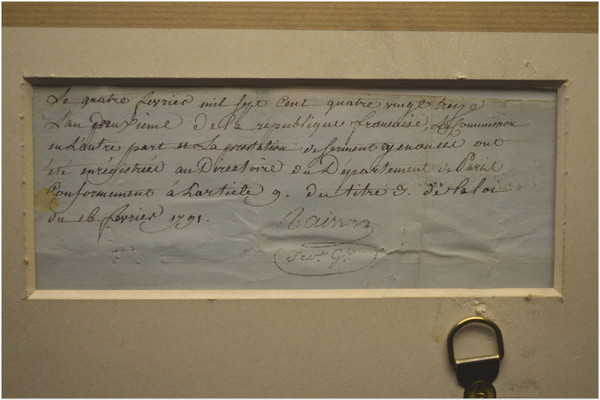 Le quatre fevrier mil sept cent quatre vingt treize
L'an deuxieme de la republique francaise, La Commission
en L'autre part et La prestation de serment y enoncee ont
été enrégistrées au Directoire du Département de Paris
Conformement à L'article 9. du titre 3. de la loi
du 16. fevrier 1791.
Raisson
Secr. G.al